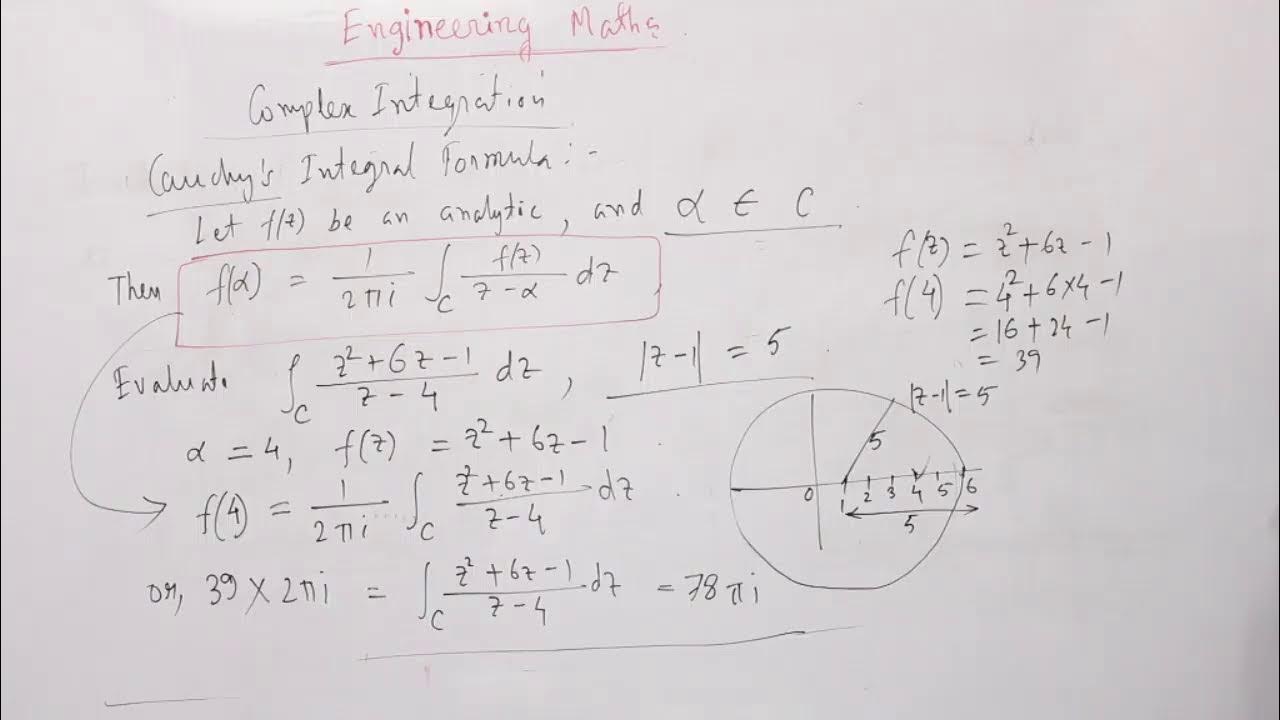 Engineering Maths
Complex Integration
Cauchy's Integral Formula :-
Let f(z) be an analytic, and α ∈ C
Then f(α) = 1/2πi ∫_C f(z)/z-α dz
Evaluate ∫_C z²+6z-1/z-4 dz, |z-1| = 5
α = 4, f(z) = z²+6z-1
f(4) = 1/2πi ∫_C z²+6z-1/z-4 dz
or, 39×2πi = ∫_C z²+6z-1/z-4 dz = 78πi
f(z) = z²+6z-1
f(4) = 4²+6×4-1
= 16+24-1
= 39
|z-1|=5
5
0 1 2 3 4 5 6
5